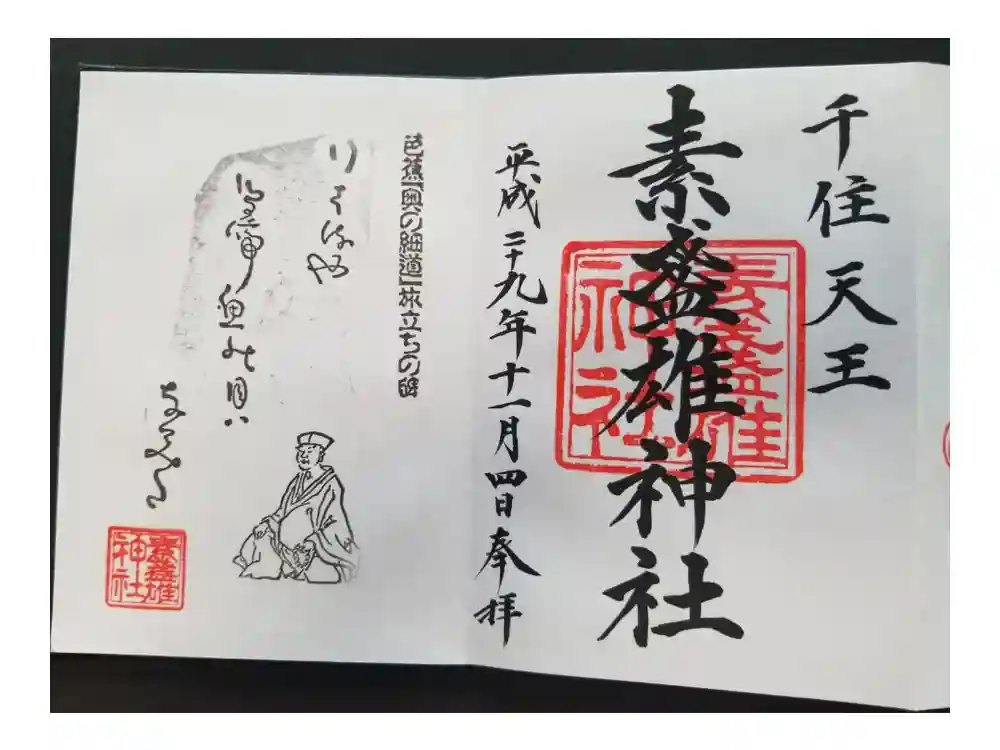 千住天王
素盞雄神社
素盞雄
神社
平成二十九年十一月四日奉拝
芭蕉『奥の細道』旅立ちの碑
行はる也
鳥啼魚の目ハ
なみだ
素盞雄
神社